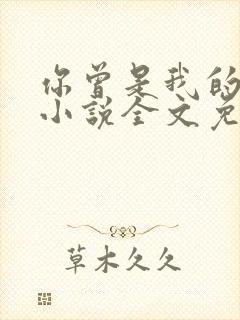 你曾是我的
小说全文免
草木久久